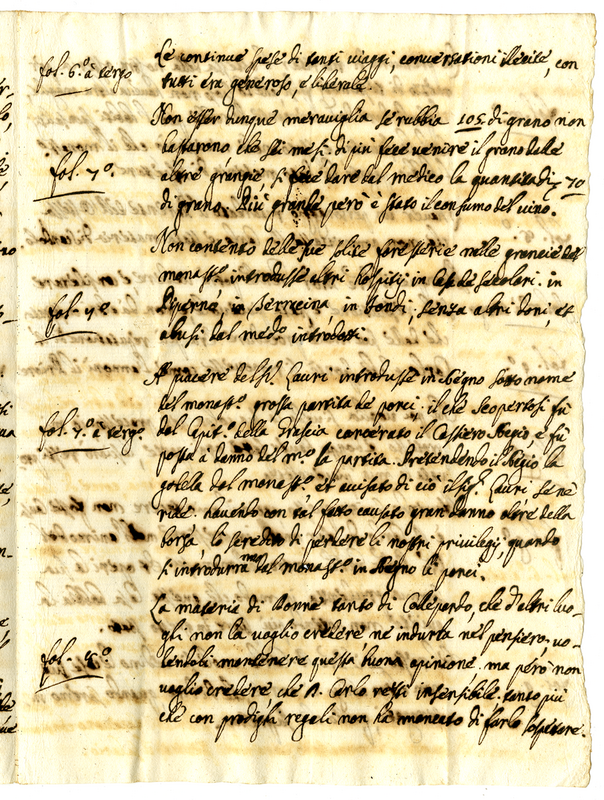 fol. 6.º à tergo
Le continue spese di tanti viaggi, conversationi illecite, con
tutti era generoso, e liberale.
Non esser dunque meraviglia se rubbia 105. di grano non
bastarono che sei mesi. di più fece venire il grano dalle
fol. 7º.
altre grangie, si fece dare dal medico la quantità di 70
di grano. Più grande però è stato il consumo del vino.
Non contento delle sue solite foresterie nelle grancie del
monastº. introdusse altri hospitij in Case de secolari. in
fol. 7º.
Piperno, in Terracina, in Fondi, senza altri doni, et
abusi dal medº. introdotti.
A piacere del Sr. Lauri introdusse in Regno sotto nome
del monastº. grossa partita de porci, il che scopertosi fù
fol. 7.º à tergº.
dal Capitº. della Grascia carcerato il Cassiero Regio, e fù
posta à danno del mº. la partita. Pretendendo il Regio la
gabella dal monastº, et avisato di ciò il Sigr. Lauri, se nè
ride. havendo con tal fatto causato gran danno oltre della
borsa, lo scredito di perdere li nostri privilegij, quando
si introdurranno dal monastº. in Regno li porci.
La materie di Donne tanto di Collepardo, che d'altri luo-
ghi non la voglio credere nè indurla nel pensiero, vo-
fol. 8º.
lendoli mantenere questa buona opinione. ma però non
voglio credere che D. Carlo resti insensibile. tanto più
che con prodighi regali non ha mancato di farlo sospettare.